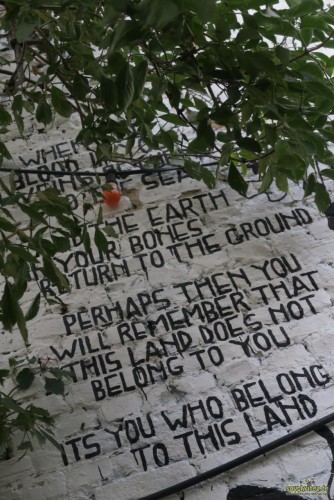 WHEN
BLOOD
THE SEA
THE EARTH
YOUR BONES
RETURN TO THE GROUND
PERHAPS THEN YOU
WILL REMEMBER THAT
THIS LAND DOES NOT
BELONG TO YOU
IT'S YOU WHO BELONG
TO THIS LAND